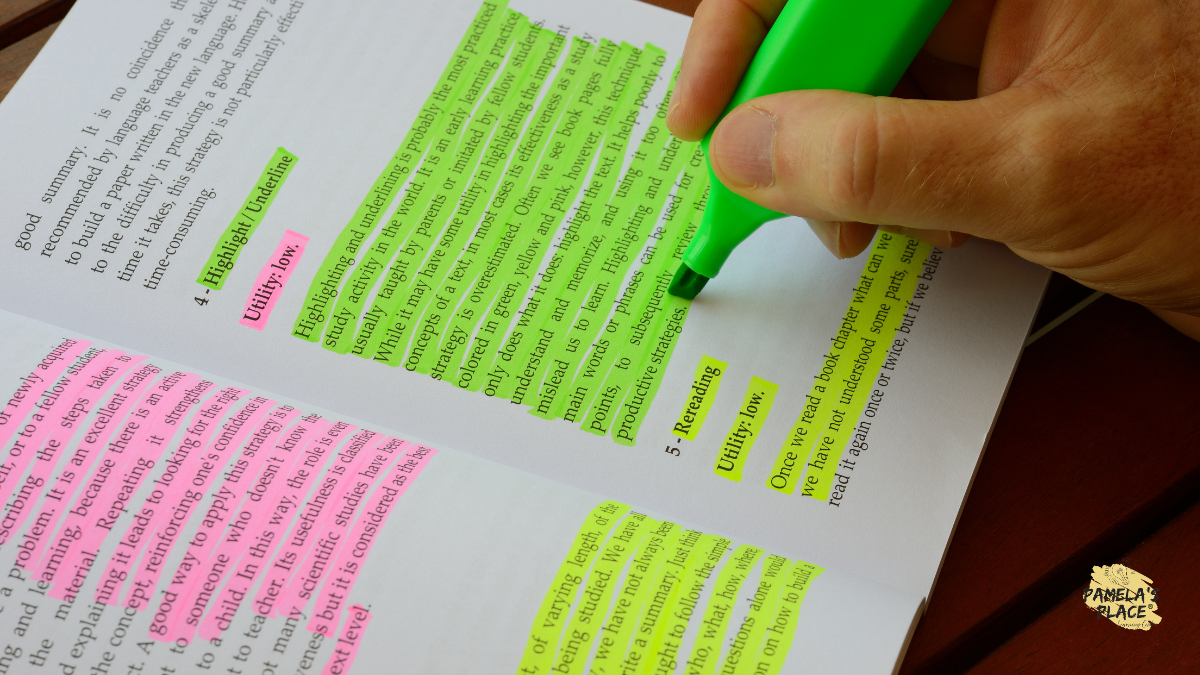 or newly acquired
or to a fellow student
the steps taken to
a problem. It is an excellent strategy
and learning, because there is an active
the material. Repeating it strengthens
explaining it leads to looking for the right
the concept, reinforcing one's confidence in
A good way to apply this strategy is to
to someone who doesn't know the
to a child. In this way, the role is even
to teacher. Its usefulness is classified
many scientific studies have been
but it is considered as the best
level.
of varying length, of the
being studied. We have all
we have not always been
a summary. Just think
to follow the simple
what, how, where
alone would
on how to build a
good summary. It is no coincidence
recommended by language teachers as a
to build a paper written in the new language.
to the difficulty in producing a good summary
time it takes, this strategy is not particularly
time-consuming.
4 - Highlight / Underline
Utility: low.
Highlighting and underlining is probably the most practiced
study activity in the world. It is an early learning practice
usually taught by parents or imitated by fellow students.
While it may have some utility in highlighting the important
concepts of a text, in most cases its effectiveness as a study
strategy is overestimated. Often we see book pages fully
colored in green, yellow and pink, however, this technique
only does what it does: highlight the text. It helps poorly to
understand and memorize, and using it too often
mislead us to learn. Highlighting and
main words or phrases can be used (or
points, to subsequently review
productive strategies.
5 - Rereading
Utility: low.
Once we read a book chapter what can we
we have not understood some parts,
read it again once or twice, but if we
PAMELA'S
PLACE®